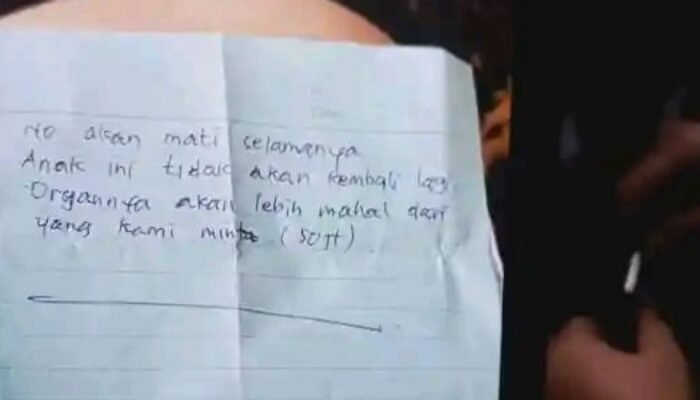 No akan mati selamanya
Anak ini tidak akan kembali lagi
Organnya akan lebih mahal dari
yang kami minta (50jt)